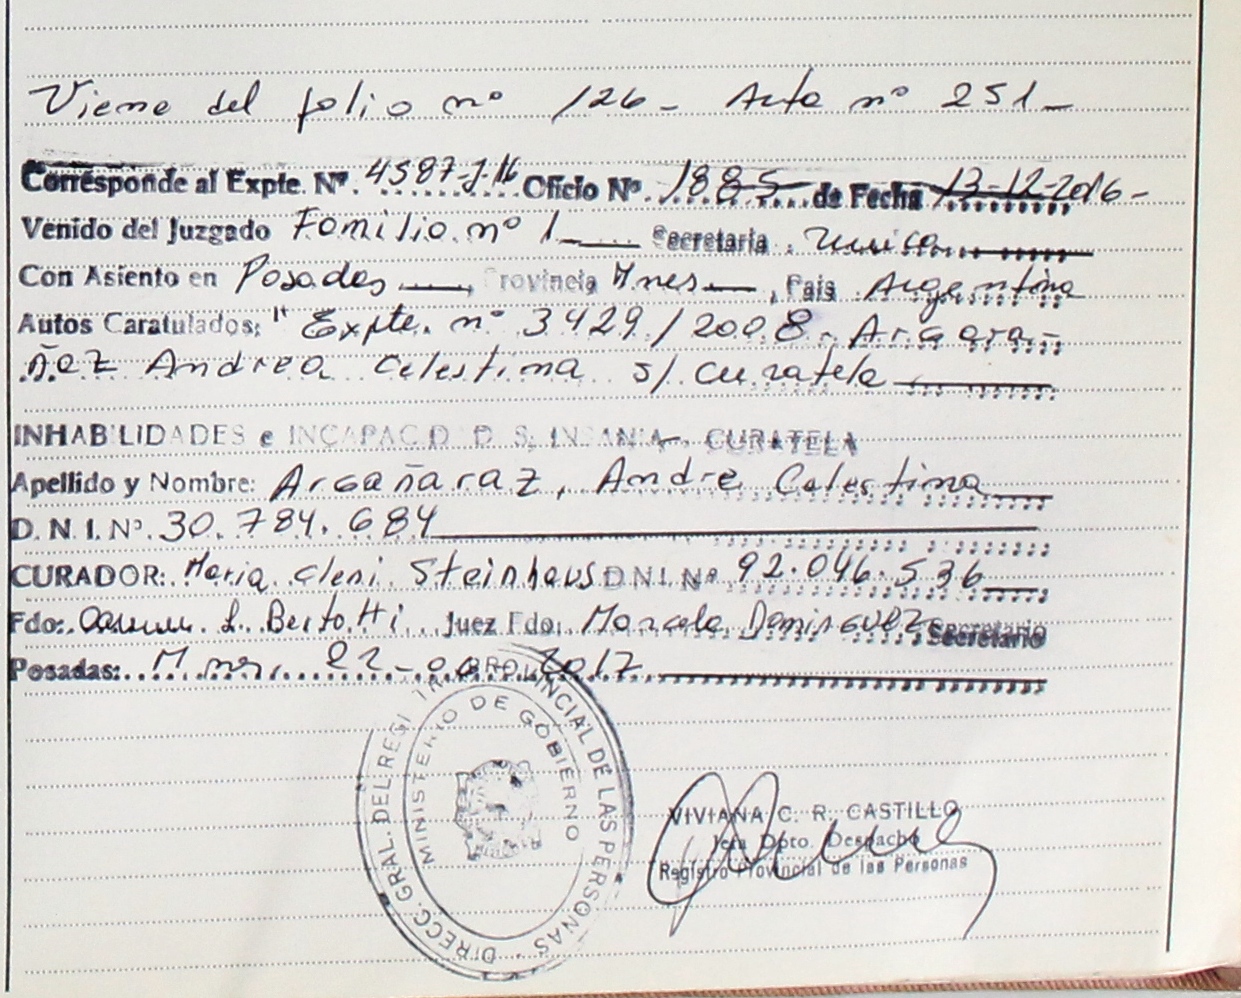 Viene del folio nº 126- Acta nº 251-
Corresponde al Expte. Nº 4587-J-16 Oficio Nº 1885 de Fecha 13-12-2016-
Venido del Juzgado Familia nº 1 Secretaria unica
Con Asiento en Posadas, Provincia Mnes, Pais Argentina
Autos Caratulados: "Expte. nº 3429/2008- Argara-
ñaz Andrea Celestina s/ curatela
INHABILIDADES e INCAPACID D S, INSANIA-, CURATELA
Apellido y Nombre: Argañaraz, Andre Celestina
D. N. I. Nº 30.784.684
CURADOR: Maria Cleni Steinhaus D N I. Nº 92.046.536
Fdo: L. Bertotti Juez Fdo: Marcela Dominguez Secretario
Posadas: Mnes, 22- 2017
DIRECC. GRAL. DEL REGISTRO PROVINCIAL DE LAS PERSONAS
MINISTERIO DE GOBIERNO
VIVIANA C. R. CASTILLO
Jefa Dpto. Despacho
Registro Provincial de las Personas